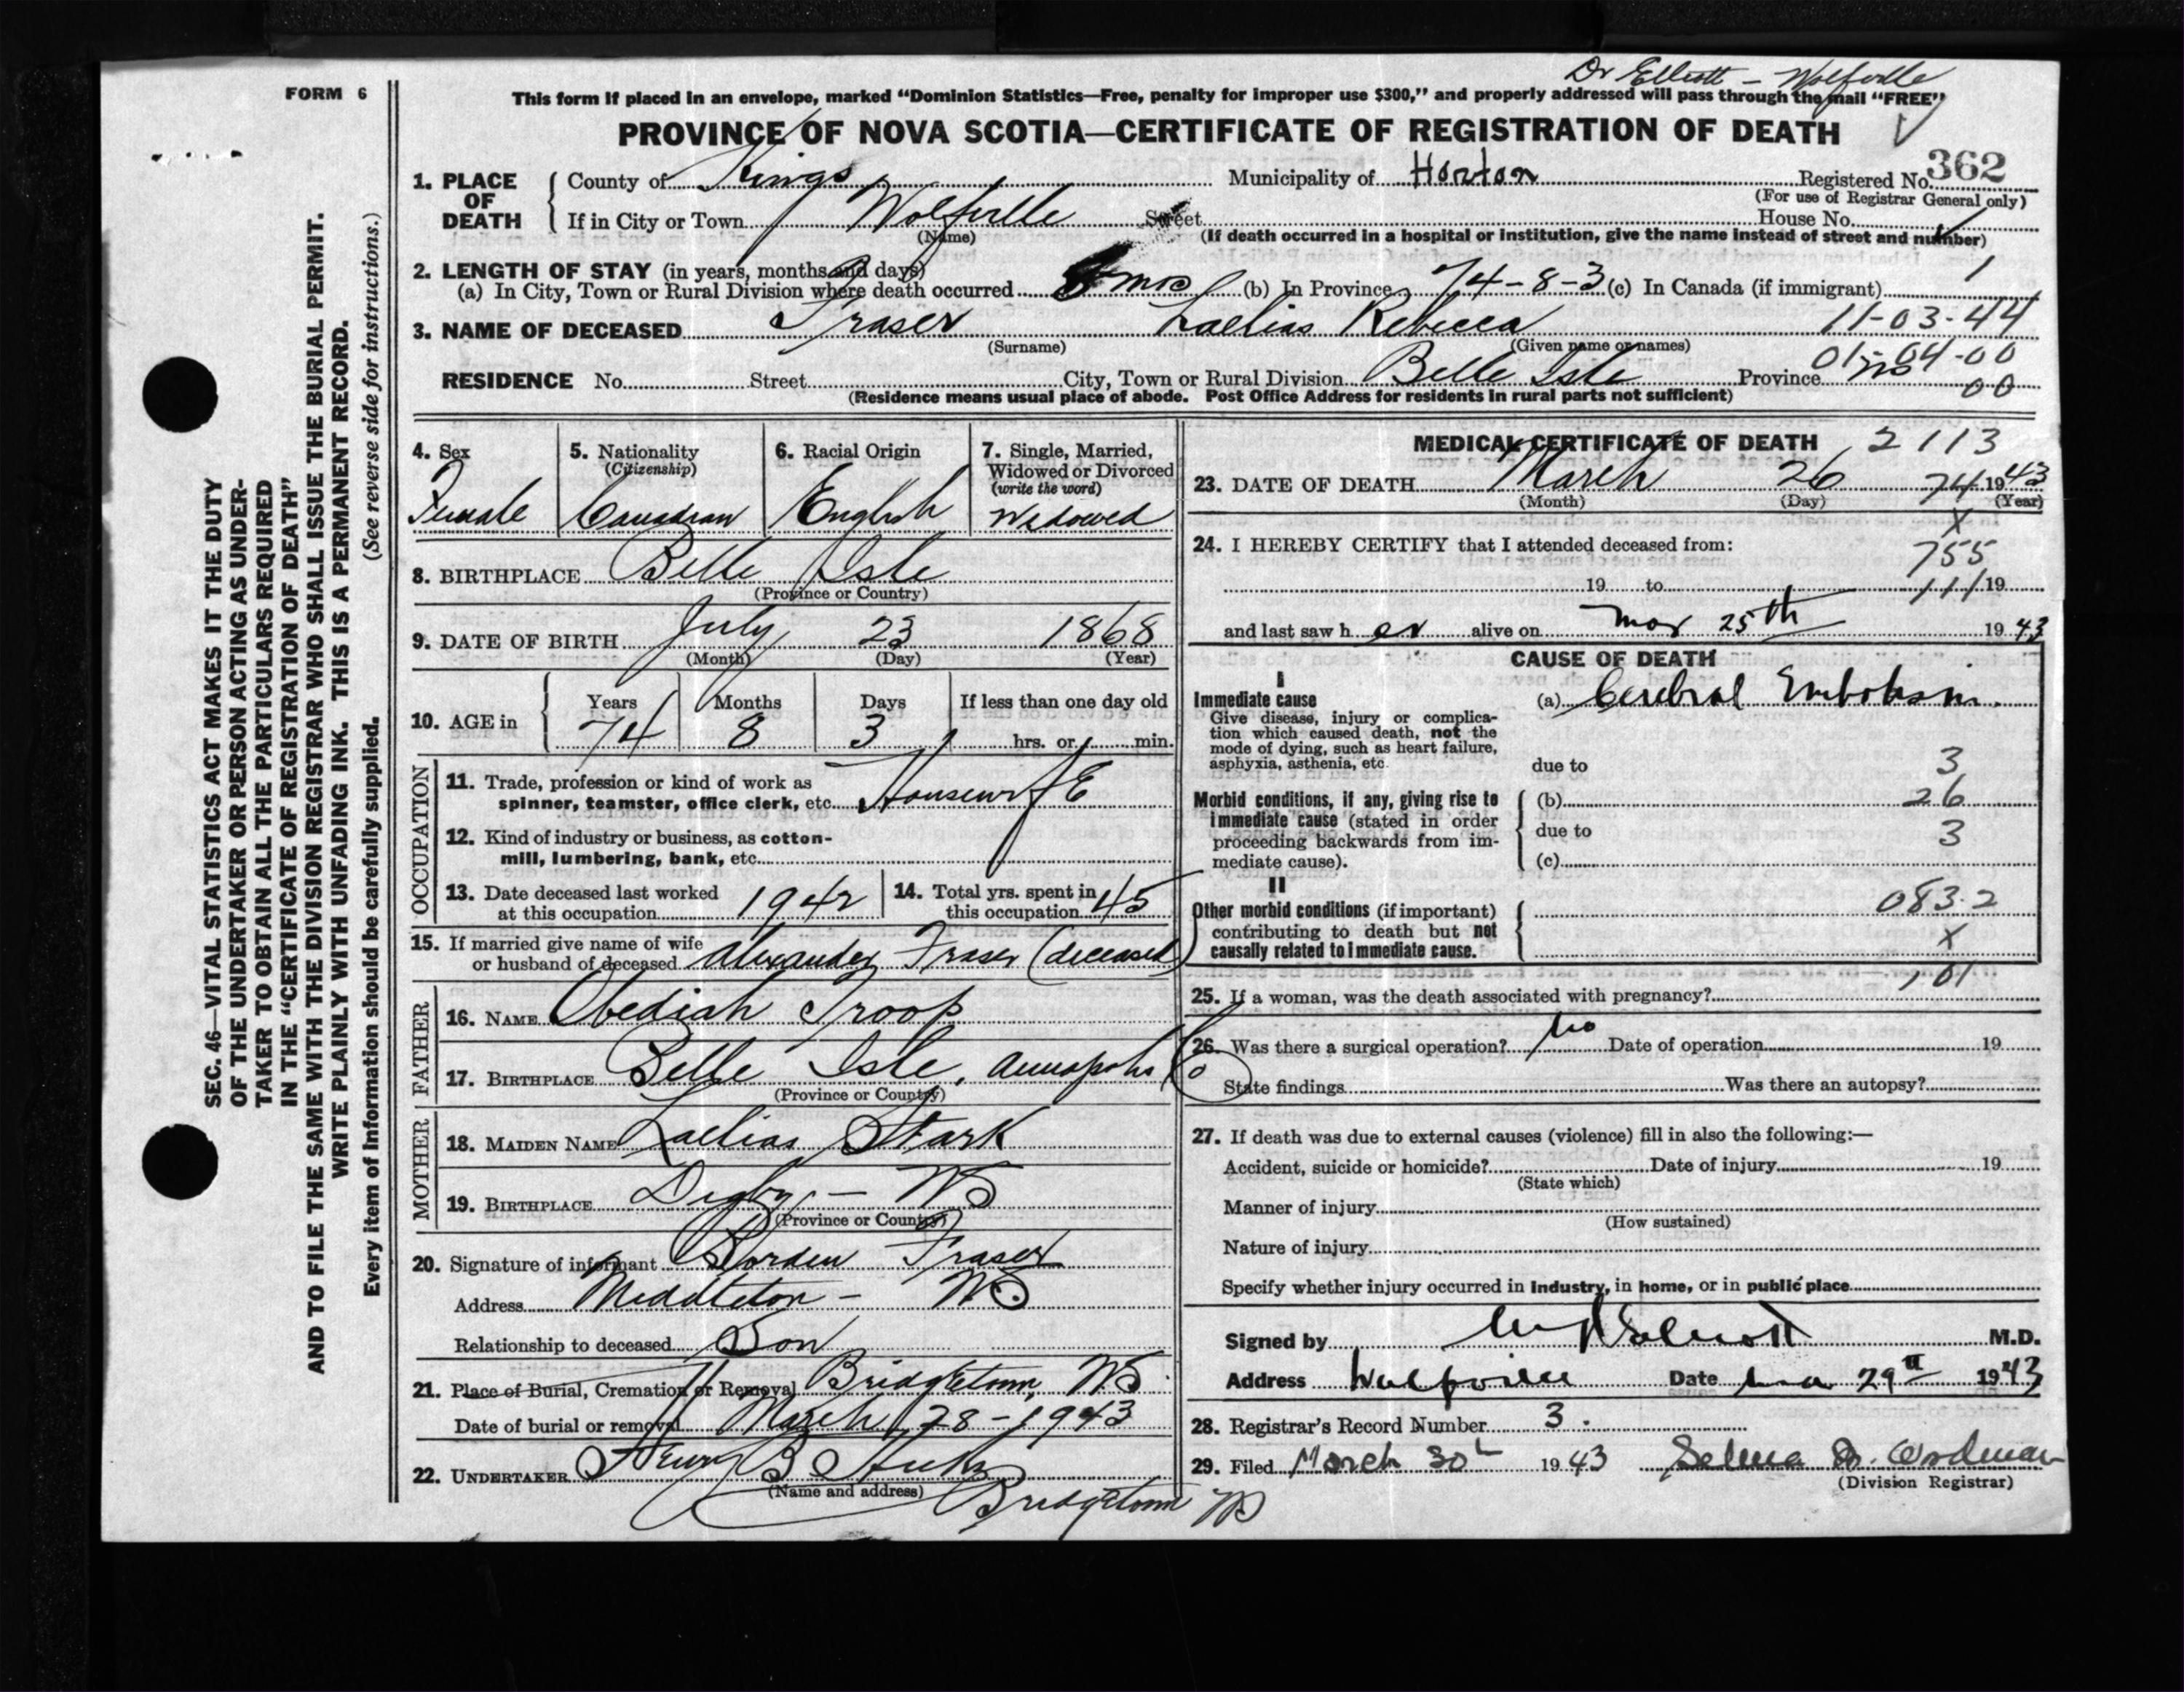 Dr Elliott - Wolfville
FORM 6
This form if placed in an envelope, marked "Dominion Statistics—Free, penalty for improper use $300," and properly addressed will pass through the mail "FREE"
PROVINCE OF NOVA SCOTIA—CERTIFICATE OF REGISTRATION OF DEATH
362
1. PLACE OF DEATH County of Kings Municipality of Horton Registered No.
(For use of Registrar General only)
If in City or Town Wolfville Street House No.
(Name) (If death occurred in a hospital or institution, give the name instead of street and number)
2. LENGTH OF STAY (in years, months and days)
(a) In City, Town or Rural Division where death occurred mos (b) In Province 74-8-3 (c) In Canada (if immigrant) 1
3. NAME OF DECEASED Fraser Laelias Rebecca 11-03-44
(Surname) (Given name or names)
01-04-00
RESIDENCE No. Street City, Town or Rural Division Belle Isle Province NS 00
(Residence means usual place of abode. Post Office Address for residents in rural parts not sufficient)
SEC. 46—VITAL STATISTICS ACT MAKES IT THE DUTY
OF THE UNDERTAKER OR PERSON ACTING AS UNDER-
TAKER TO OBTAIN ALL THE PARTICULARS REQUIRED
IN THE "CERTIFICATE OF REGISTRATION OF DEATH"
AND TO FILE THE SAME WITH THE DIVISION REGISTRAR WHO SHALL ISSUE THE BURIAL PERMIT.
WRITE PLAINLY WITH UNFADING INK. THIS IS A PERMANENT RECORD.
Every item of information should be carefully supplied. (See reverse side for instructions.)
4. Sex
Female
5. Nationality
(Citizenship)
Canadian
6. Racial Origin
English
7. Single, Married,
Widowed or Divorced
(write the word)
Widowed
8. BIRTHPLACE Belle Isle
(Province or Country)
9. DATE OF BIRTH July 23 1868
(Month) (Day) (Year)
10. AGE in Years Months Days If less than one day old
74 8 3 hrs. or min.
OCCUPATION
11. Trade, profession or kind of work as
spinner, teamster, office clerk, etc. HousewifE
12. Kind of industry or business, as cotton-
mill, lumbering, bank, etc.
13. Date deceased last worked
at this occupation 1942
14. Total yrs. spent in
this occupation 45
15. If married give name of wife
or husband of deceased Alexander Fraser (deceased)
FATHER
16. NAME Obediah Troop
17. BIRTHPLACE Belle Isle, Annapolis Co
(Province or Country)
MOTHER
18. MAIDEN NAME Laelias Stark
19. BIRTHPLACE Digby - NS
(Province or Country)
20. Signature of informant Borden Fraser
Address Middleton - NS.
Relationship to deceased Son
21. Place of Burial, Cremation or Removal Bridgetown, NS
Date of burial or removal March 28-1943
22. UNDERTAKER Henry B Hicks
(Name and address) Bridgetown NS
MEDICAL CERTIFICATE OF DEATH 2113
23. DATE OF DEATH March 26 74 1943
(Month) (Day) (Year)
X
24. I HEREBY CERTIFY that I attended deceased from:
755
19 to 111 19
and last saw h er alive on Mar 25th 1943
CAUSE OF DEATH
I
Immediate cause
Give disease, injury or complica-
tion which caused death, not the
mode of dying, such as heart failure,
asphyxia, asthenia, etc.
(a) Cerebral Embolism.
due to 3
Morbid conditions, if any, giving rise to
immediate cause (stated in order
proceeding backwards from im-
mediate cause).
(b) 26
due to 3
(c)
II
Other morbid conditions (if important)
contributing to death but not
causally related to immediate cause.
083.2
X
101
25. If a woman, was the death associated with pregnancy?
26. Was there a surgical operation? No Date of operation 19
State findings Was there an autopsy?
27. If death was due to external causes (violence) fill in also the following:—
Accident, suicide or homicide? Date of injury 19
(State which)
Manner of injury
(How sustained)
Nature of injury
Specify whether injury occurred in industry, in home, or in public place
Signed by M.D.
Address Wolfville Date Mar 29th 1943
28. Registrar's Record Number 3.
29. Filed March 30th 1943 Selma
(Division Registrar)